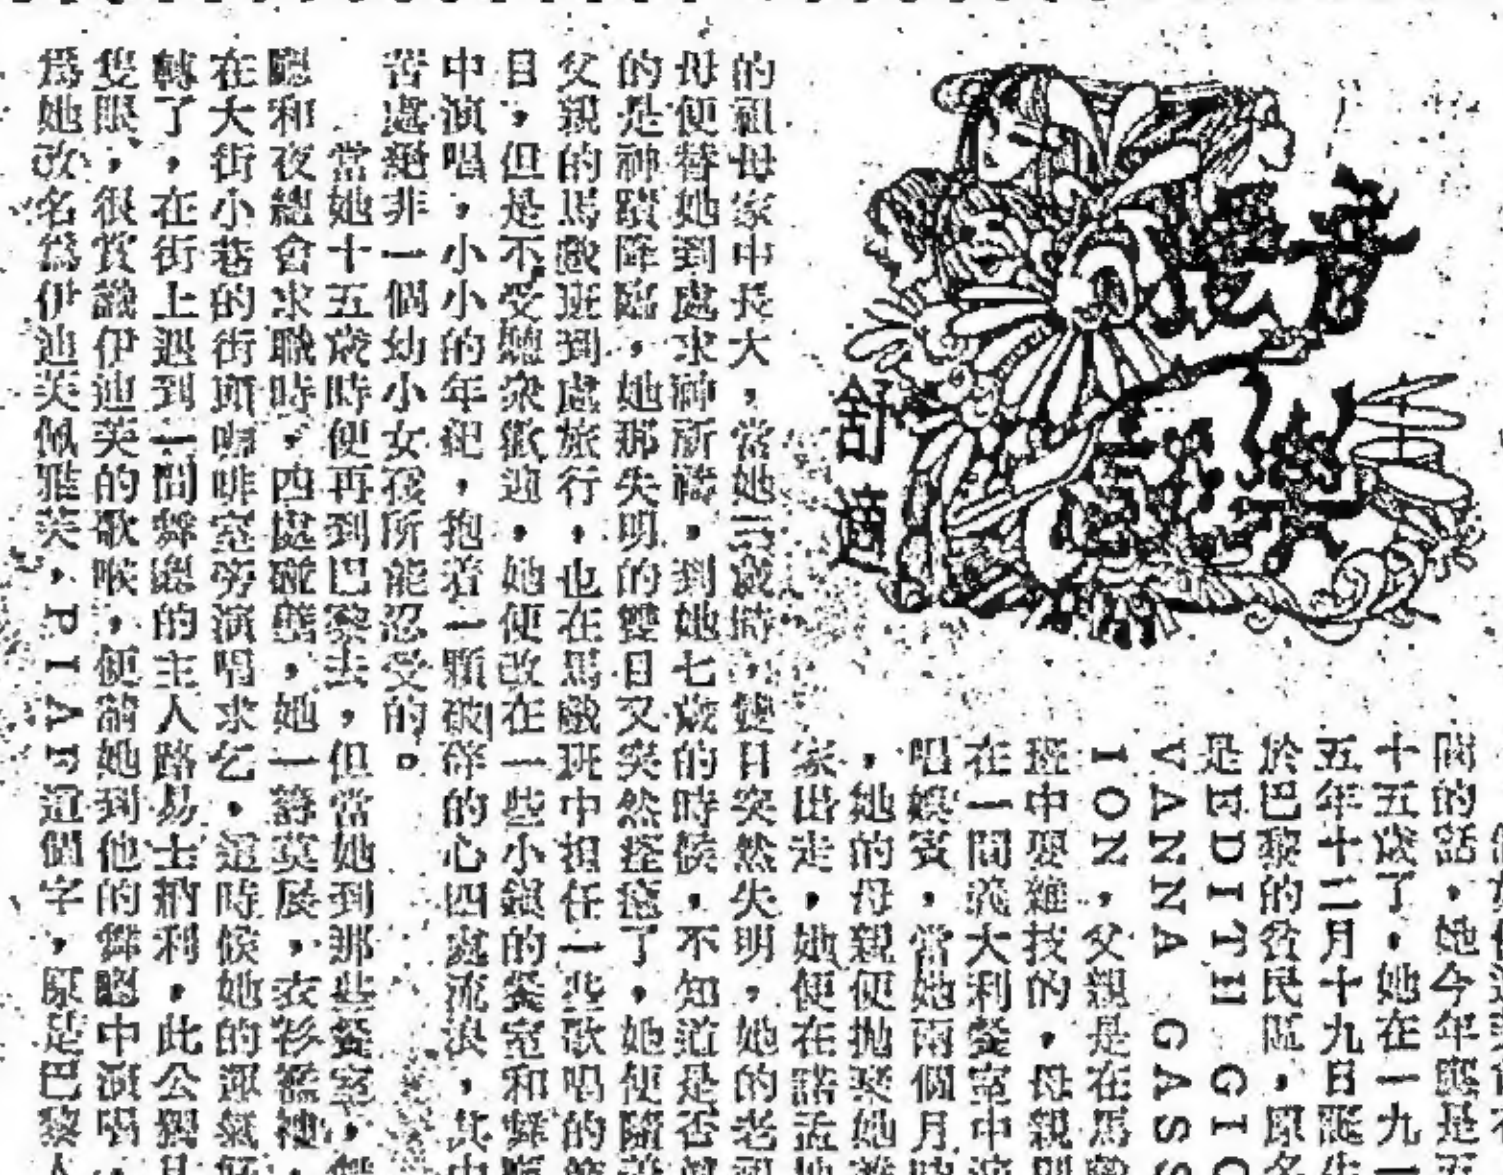 舒適
間的話，她今年應是
十五歲了，她在一九
五年十二月十九日誕生
於巴黎的貧民區，原名
是EDITH GIO
VANNA GAS
ION，父親是在馬戲
班中耍雜技的，母親則
在一間義大利餐室中演
唱娛賓，當她兩個月時
，她的母親便拋棄她
家出走，她便在諾孟地
的祖母家中長大，當她三歲時，雙目突然失明，她的老祖
母便替她到處求神祈禱，到她七歲的時候，不知道是否眞
的是神蹟降臨，她那失明的雙目又突然痊癒了，她便隨着
父親的馬戲班到處旅行，也在馬戲班中担任一些歌唱的節
目，但是不受聽衆歡迎，她便改在一些小鎭的餐室和舞廳
中演唱，小小的年紀，抱着一顆破碎的心四處流浪，其中
苦處絕非一個幼小女孩所能忍受的。
當她十五歲時便再到巴黎去，但當她到那些餐室，舞
廳和夜總會求職時，四處碰壁，她一籌莫展，衣衫襤褸，
在大街小巷的街頭咖啡室旁演唱求乞，這時候她的運氣好
轉了，在街上遇到一間舞廳的主人路易士納利，此公獨具
隻眼，很賞識伊迪芙的歌喉，便請她到他的舞廳中演唱，
爲她改名爲伊迪芙佩雅芙，PIAF這個字，原是巴黎人